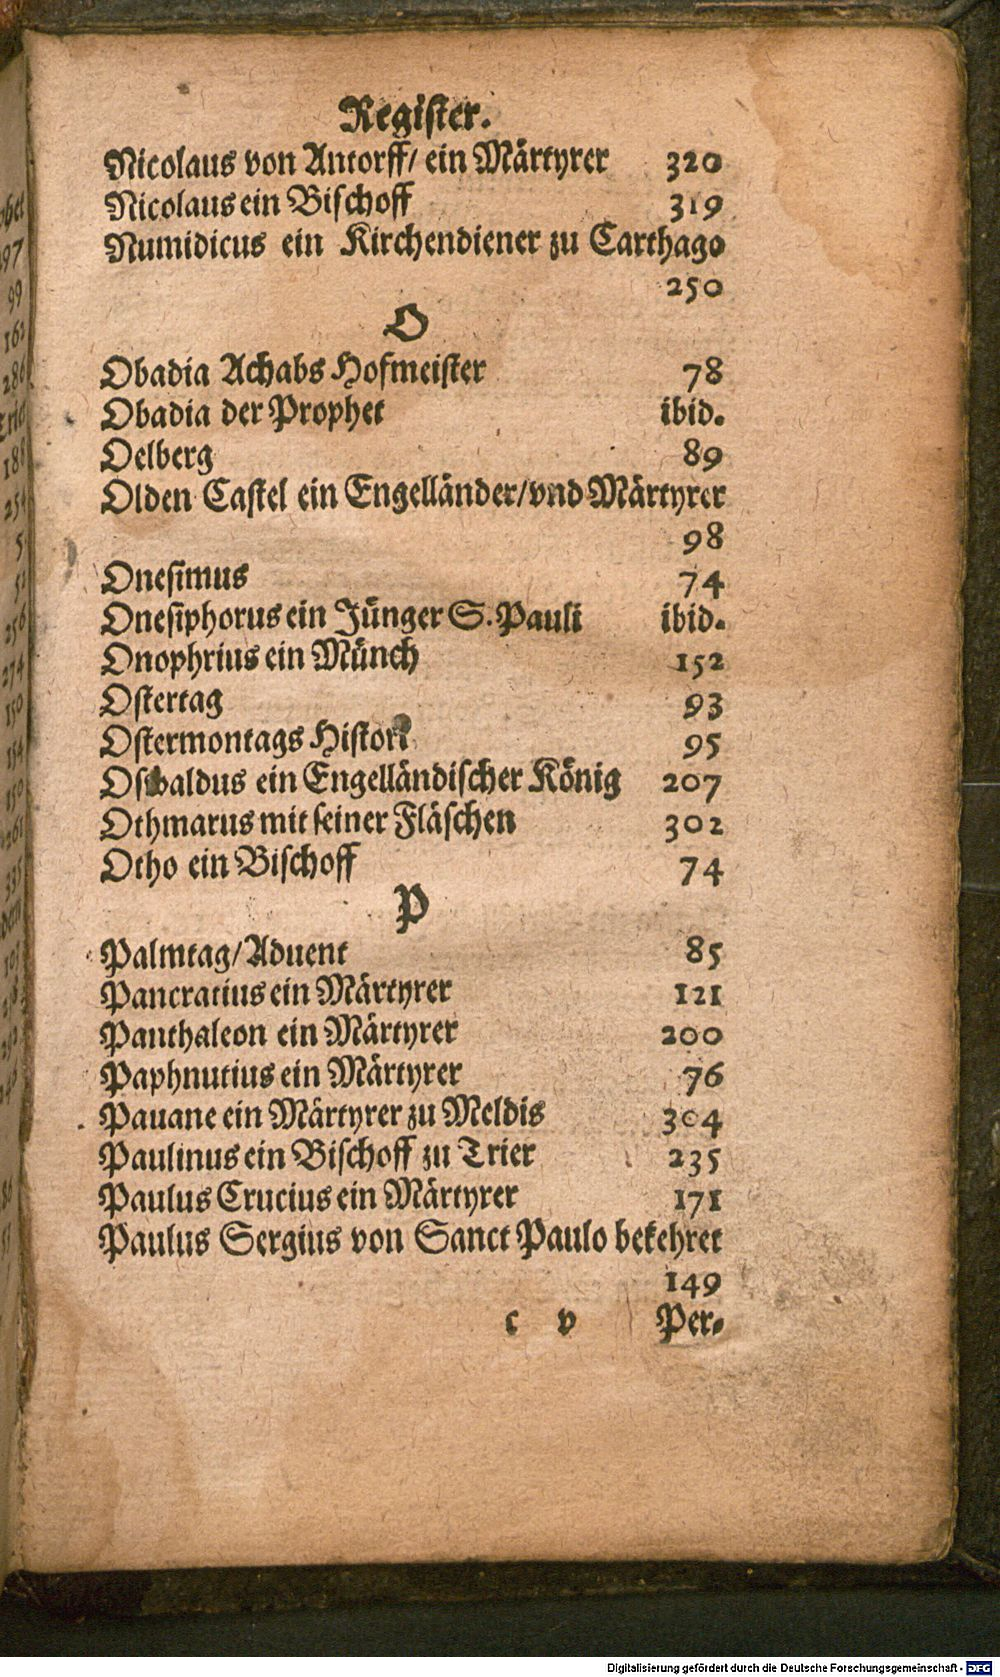 Register.
Nicolaus von Antorff/ ein Märtyrer 320
Nicolaus ein Bischoff 319
Numidicus ein Kirchendiener zu Carthago
250
O
Obadia Achabs Hofmeister 78
Obadia der Prophet ibid.
Oelberg 89
Olden Castel ein Engelländer/ vnd Märtyrer
98
Onesimus 74
Onesiphorus ein Jünger S. Pauli ibid.
Onophrius ein Münch 152
Ostertag 93
Ostermontags Histori 95
Oswaldus ein Engelländischer König 207
Othmarus mit seiner Fläschen 302
Otho ein Bischoff 74
P
Palmtag/ Aduent 85
Pancratius ein Märtyrer 121
Panthaleon ein Märtyrer 200
Paphnutius ein Märtyrer 76
Pauane ein Märtyrer zu Meldis 304
Paulinus ein Bischoff zu Trier 235
Paulus Crucius ein Märtyrer 171
Paulus Sergius von Sanct Paulo bekehret
149
c v Per-
Digitalisierung gefördert durch die Deutsche Forschungsgemeinschaft - DFG